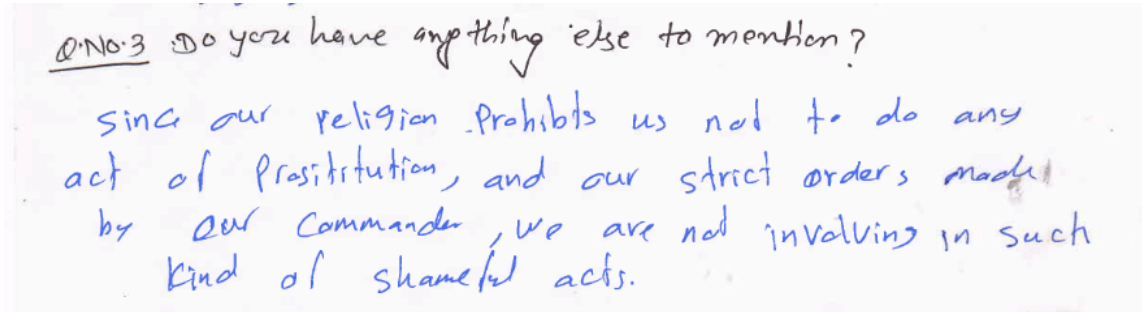 Q.NO.3 Do you have anything else to mention?
Since our religion Prohibts us not to do any
act of Prositrtution, and our strict orders made
by our Commander, we are not involving in such
Kind of shameful acts.